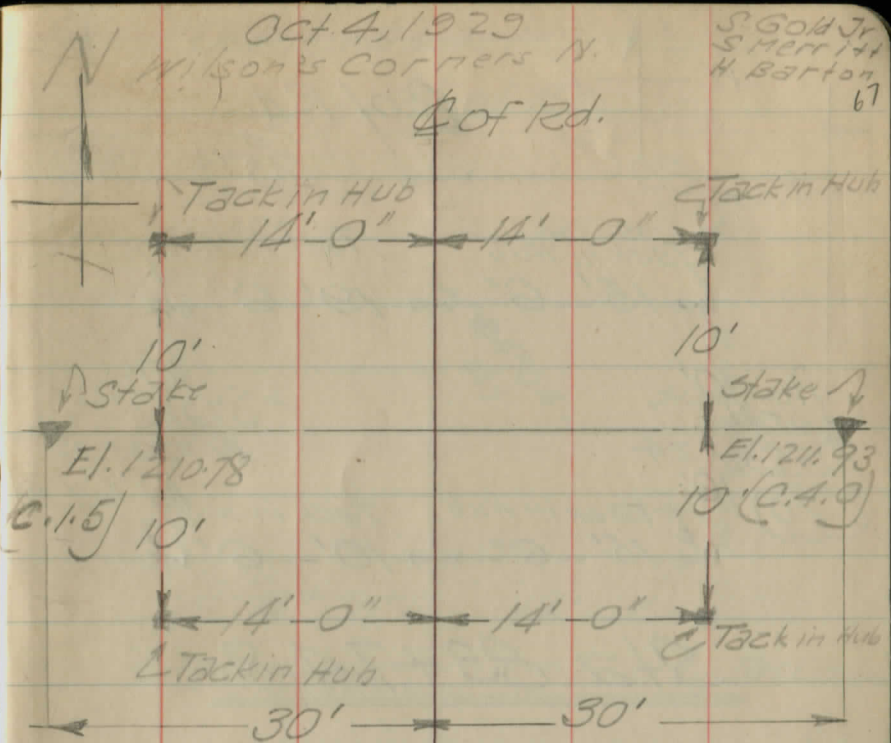 Oct. 4, 1929
S. Gold Jr
N Wilson's Corners N.
S Merritt
H. Barton
67
℄ of Rd.
Tack in Hub
Tack in Hub
14'-0" 14'-0"
10' 10'
Stake Stake
El. 1210.78 El. 1211.93
(C.1.5) 10' 10' (C.4.0)
14'-0" 14'-0"
Tack in Hub
Tack in Hub
30' 30'